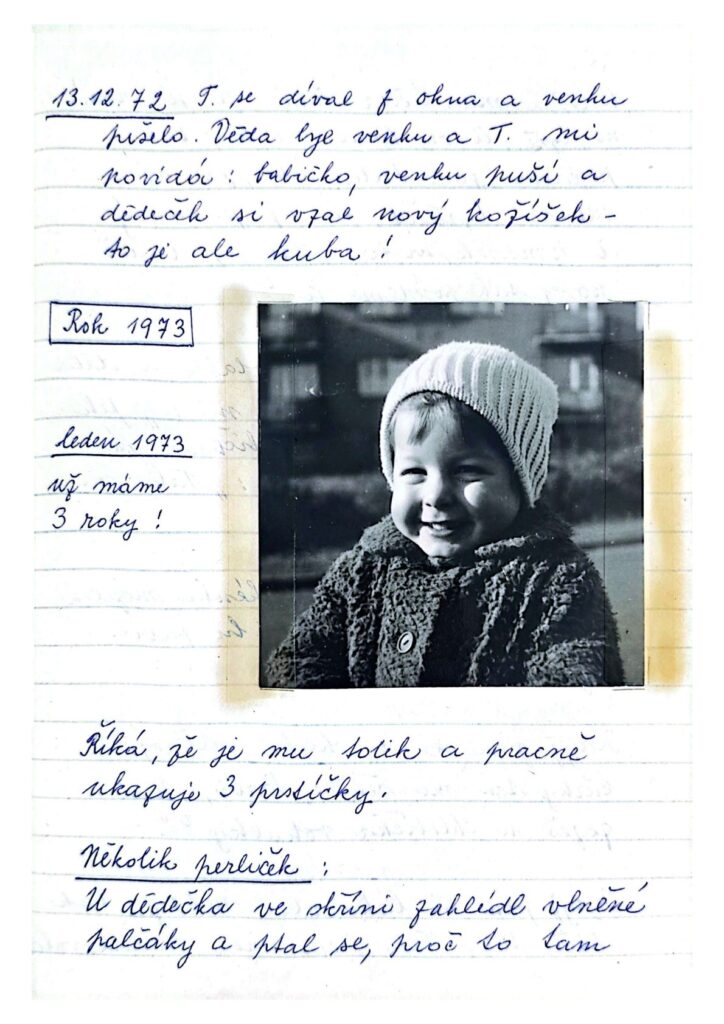 13.12.72 T. se díval z okna a venku
pršelo. Děda byl venku a T. mi
povídá: babičko, venku puší a
dědeček si vzal nový kožíšek –
to je ale kuba!
Rok 1973
leden 1973
už máme
3 roky!
Říká, že je mu tolik a pracně
ukazuje 3 prstíčky.
Několik perliček:
U dědečka ve skříni zahlédl vlněné
palčáky a ptal se, proč to tam